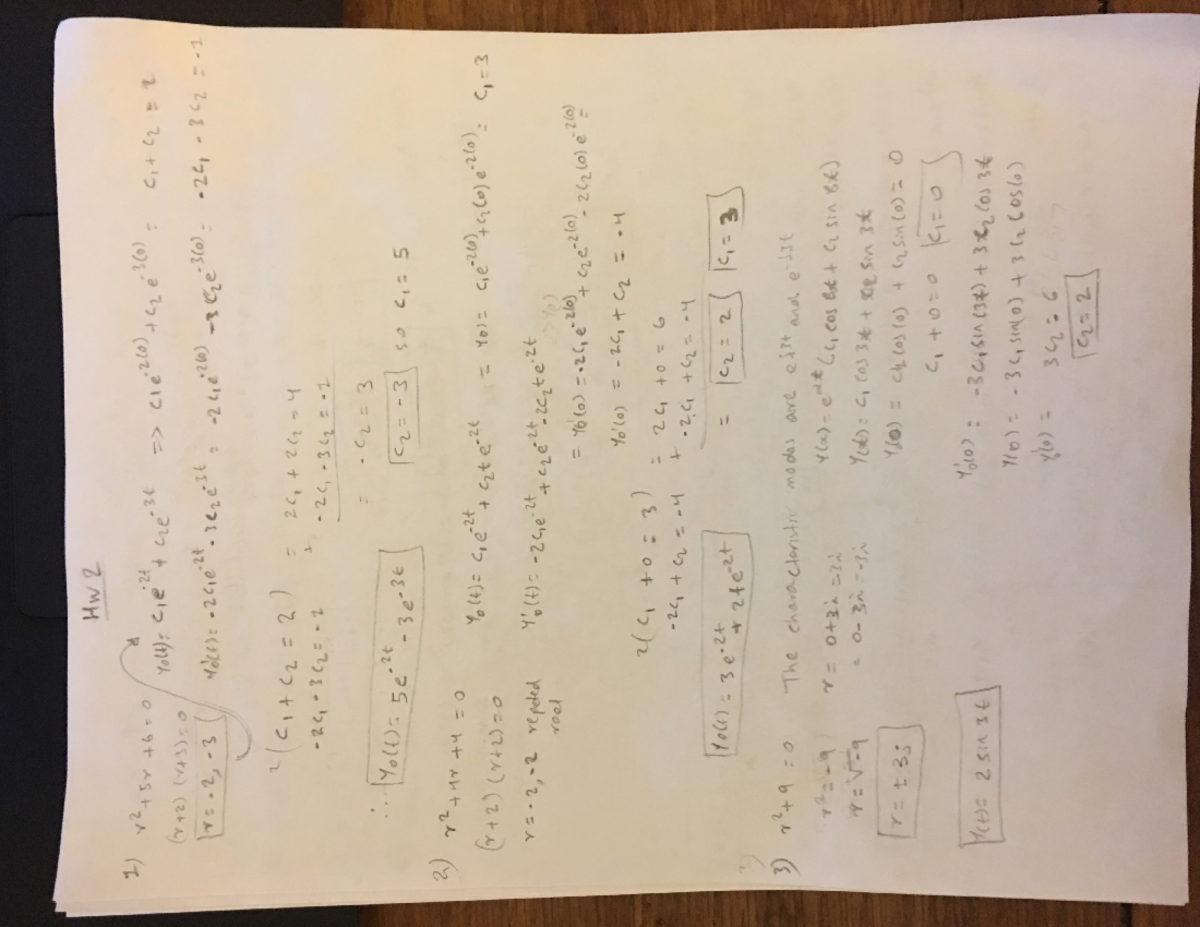 HW2
1) r² + 5r + 6 = 0
(r+2)(r+3) = 0
r = -2, -3
y₀(t) = c₁e^-2t + c₂e^-3t => c₁e^-2(0) + c₂e^-3(0) = c₁ + c₂ = 2
y₀'(t) = -2c₁e^-2t - 3c₂e^-3t = -2c₁e^-2(0) - 3c₂e^-3(0) = -2c₁ - 3c₂ = -1
2(c₁ + c₂ = 2) = 2c₁ + 2c₂ = 4
-2c₁ - 3c₂ = -1 + -2c₁ - 3c₂ = -1
= -c₂ = 3
c₂ = -3 so c₁ = 5
∴ y₀(t) = 5e^-2t - 3e^-3t
2) r² + 4r + 4 = 0
(r+2)(r+2) = 0
r = -2, -2 repeted root
y₀(t) = c₁e^-2t + c₂te^-2t = y(0) = c₁e^-2(0) + c₂(0)e^-2(0) = c₁ = 3
y₀'(t) = -2c₁e^-2t + c₂e^-2t - 2c₂te^-2t
= y₀'(0) = -2c₁e^-2(0) + c₂e^-2(0) - 2c₂(0)e^-2(0) =
y₀'(0) = -2c₁ + c₂ = -4
2(c₁ + 0 = 3) = 2c₁ + 0 = 6
-2c₁ + c₂ = -4 + -2c₁ + c₂ = -4
= c₂ = 2 c₁ = 3
y₀(t) = 3e^-2t + 2te^-2t
3) r² + 9 = 0 The characteristic modes are e^j3t and e^-j3t
r² = -9 r = 0+3i = 3i
r = √-9 = 0-3i = -3i
r = ± 3j
y(x) = e^αt (c₁ cos βt + c₂ sin βt)
y(t) = c₁ cos 3t + c₂ sin 3t
y₀(0) = c₁ cos(0) + c₂ sin(0) = 0
c₁ + 0 = 0 c₁ = 0
y₀'(0) = -3c₁ sin(3t) + 3c₂ cos 3t
y(0) = -3c₁ sin(0) + 3c₂ cos(0)
y'(0) = 3c₂ = 6
c₂ = 2
y(t) = 2 sin 3t